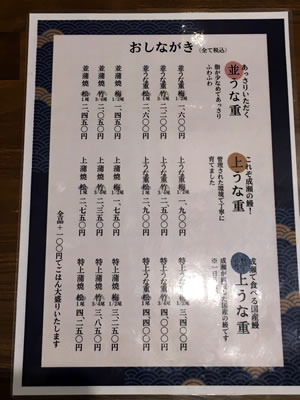 おしながき (全て税込)
あっさりいただく
並うな重
脂が少なめであっさり
ふわふわ
並うな重 梅 1/2尾 一、六〇〇円
並うな重 竹 3/4尾
並うな重 松 1尾 二、六〇〇円
並蒲焼 梅 1/2尾 一、四五〇円
並蒲焼 竹 3/4尾 二、〇五〇円
並蒲焼 松 1尾 二、四五〇円
こぞ成瀬の鰻!
上うな重
管理された環境で丁寧に
育てました
上うな重 梅 1/2尾 一、九〇〇円
上うな重 竹 3/4尾
上うな重 松 1尾 二、九〇〇円
上蒲焼 梅 1/2尾 一、七五〇円
上蒲焼 竹 3/4尾 二、三五〇円
上蒲焼 松 1尾 二、七五〇円
成瀬で食べる国産鰻
特上うな重
国産の鰻です
※一日
特上うな重 梅 1/2尾 三、四〇〇円
特上うな重 竹 3/4尾 四、〇〇〇円
特上うな重 松 1尾 四、四〇〇円
特上蒲焼 梅 1/2尾 三、二五〇円
特上蒲焼 竹 3/4尾 三、八五〇円
特上蒲焼 松 1尾 四、二五〇円
全品+一〇〇円でごはん大盛りいたします